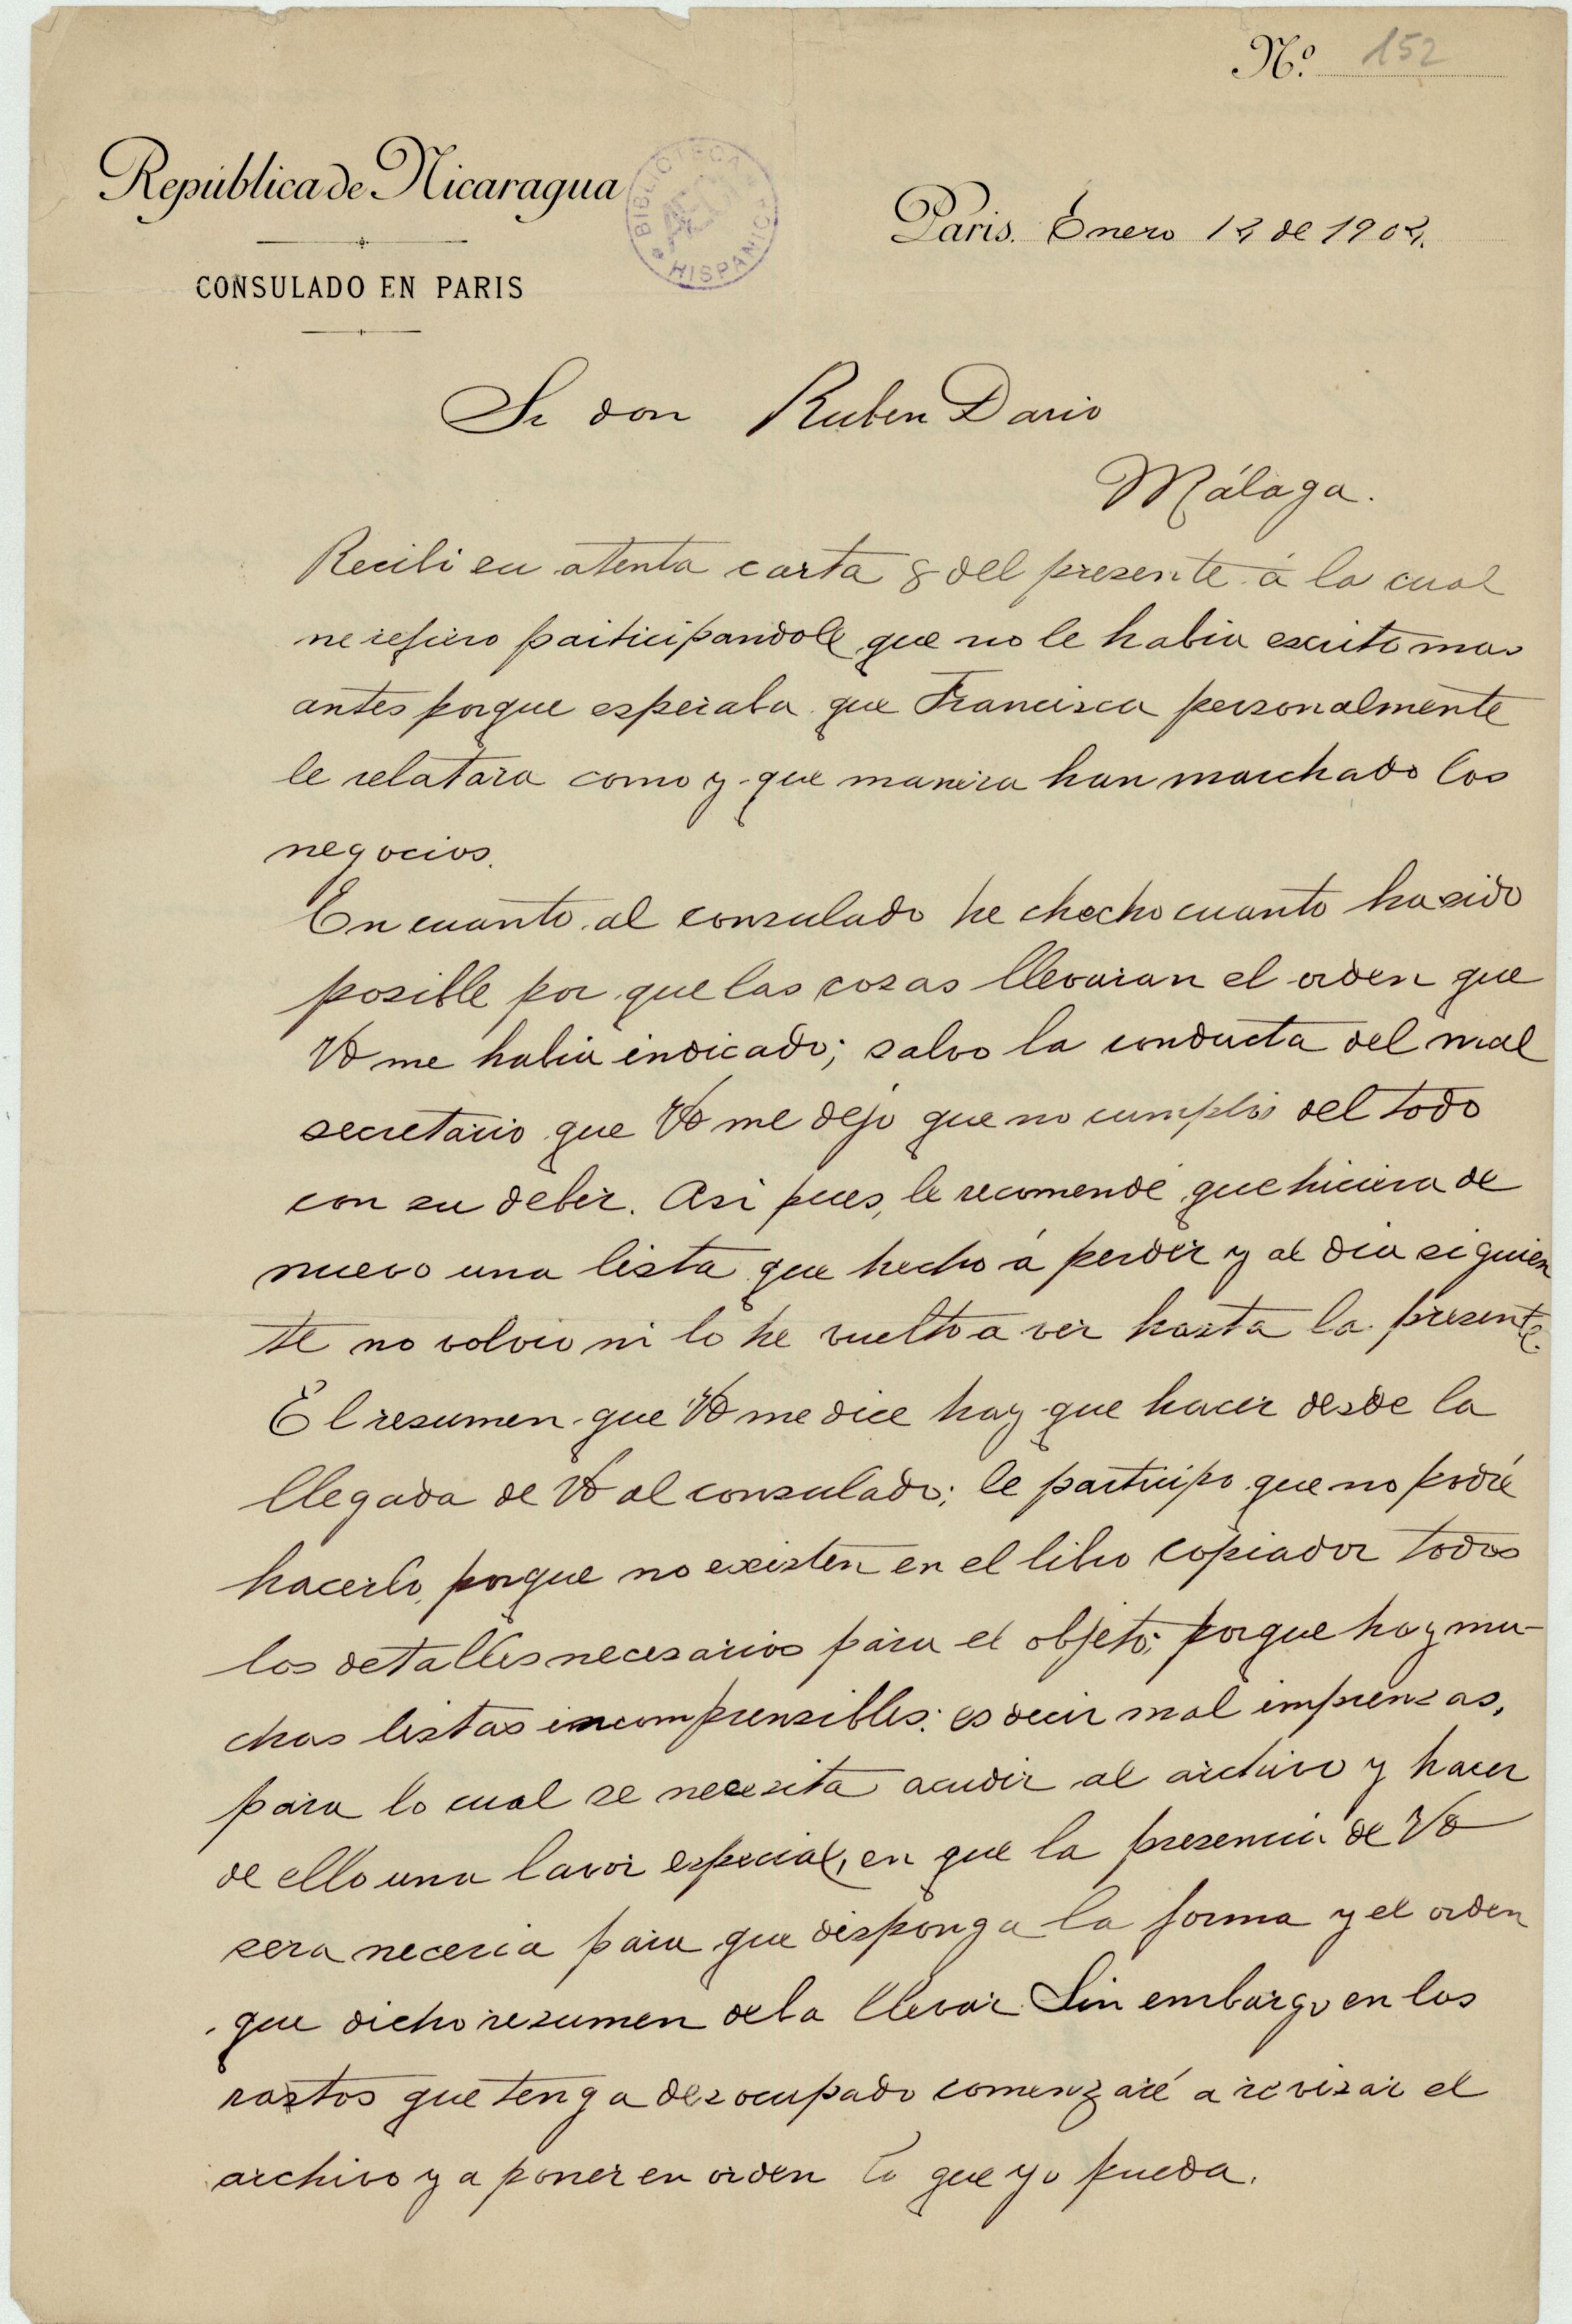 Nº 152
República de Nicaragua
CONSULADO EN PARIS
BIBLIOTECA HISPANICA
Paris. Enero 12 de 1904.
Sr don Ruben Dario
Málaga.
Recibi su atenta carta 8 del presente á la cual
me refiero participandole que no le habia escrito mas
antes porque esperaba que Francisca personalmente
le relatara como y que manera han marchado los
negocios.
En cuanto al consulado he checho cuanto ha sido
posible por que las cosas llevaran el orden que
Vd me habia indicado; salvo la conducta del mal
secretario que Vd me dejo que no cumplio del todo
con su deber. Asi pues, le recomendé que hiciera de
nuevo una lista que hecho á perder y al dia siguien
te no volvio ni lo he vuelto a ver hasta la presente.
El resumen que Vd me dice hay que hacer desde la
llegada de Vd al consulado; le participo que no podré
hacerlo, porque no existen en el libro copiador todos
los detalles necesarios para el objeto; porque hay mu-
chas listas incomprensibles: es decir mal imprensas,
para lo cual se necesita acudir al archivo y hacer
de ello una lavor especial, en que la presencia de Vd
sera neceria para que disponga la forma y el orden
que dicho resumen deba llevar. Sin embargo en los
rastos que tenga desocupado comenzaré a revisar el
archivo y a poner en orden lo que yo pueda.